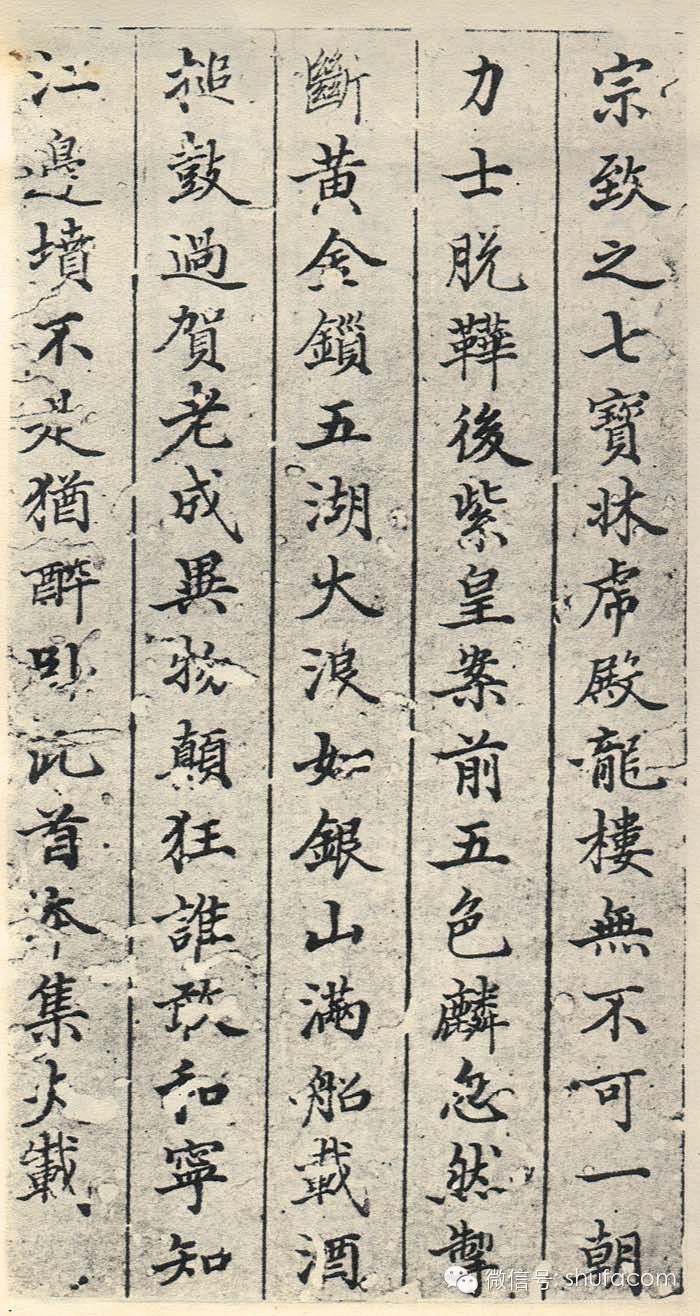 宗致之七寶牀虎殿龍樓無不可一朝
力士脫鞾後紫皇案前五色麟忽然掣
斷黃金鎖五湖大浪如銀山滿船載酒
搥鼓過賀老成異物顛狂誰敢和寧知
江邊墳不是猶醉卧此首本集載
微信号: shufacom